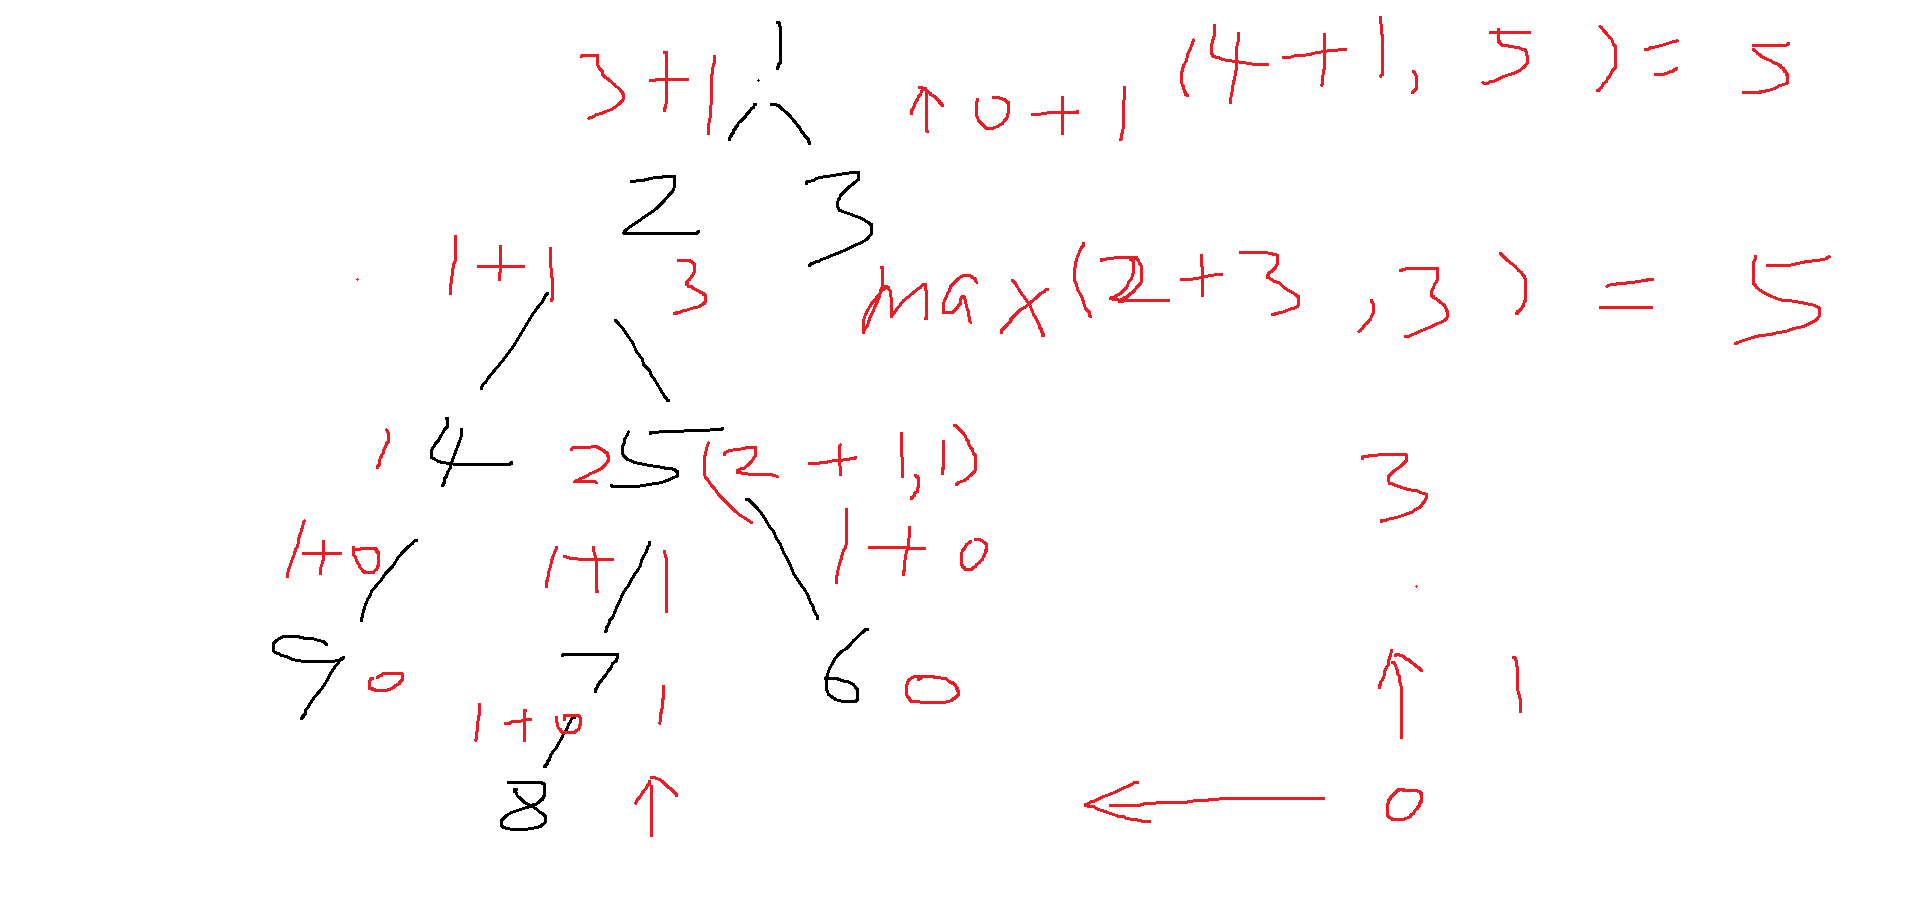 1
3+1 ↑ 0+1 (4+1, 5) = 5
2 3
1+1 3 max(2+3, 3) = 5
1 4 2 5 (2+1, 1) 3
1+0 1+1 1+0
9 0 7 6 0 ↑ 1
1+0 1
8 ↑ ← 0